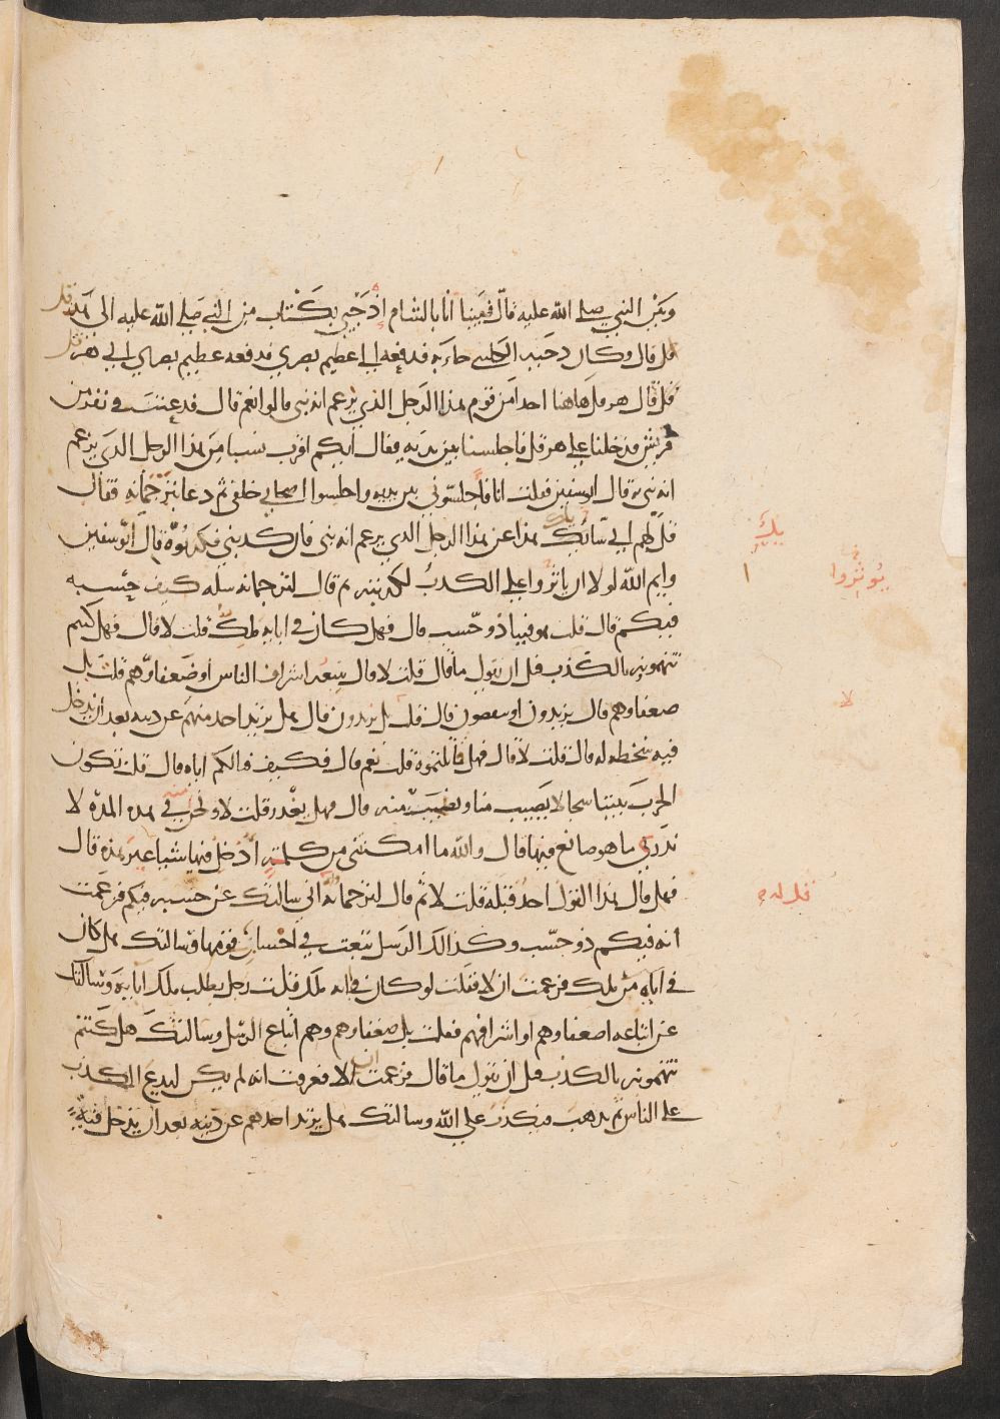 وبين النبي صلى الله عليه قال فبينا انا بالشام اذ جيء بكتاب من النبي صلى الله عليه الى هرقل
قال وكان دحيه الكلبي جاء به فدفعه الي عظيم بصري فدفعه عظيم بصري الي هرقل
فقال هرقل هاهنا احد من قوم هذا الرجل الذي يزعم انه نبي قالوا نعم قال فدعيت في نفر من
قريش فدخلنا علي هرقل فاجلسنا بين يديه فقال ايكم اقرب نسبا من هذا الرجل الذي يزعم
انه نبي قال ابو سفين فقلت انا فاجلسوني بين يديه واجلسوا اصحابي خلفي ثم دعا بترجمانه فقال
قل لهم اني سائلك هذا عن هذا الرجل الذي يزعم انه نبي فان كذبني فكذبوه قال ابو سفين
وايم الله لولا ان ياثروا علي الكذب لكذبته ثم قال لترجمانه سله كيف حسبه
فيكم قال قلت هو فينا ذو حسب قال فهل كان في ابايه ملك قلت لا قال فهل كنتم
تتهمونه بالكذب قبل ان يقول ما قال قلت لا قال يتبعه اشراف الناس او ضعفاوهم قلت بل
ضعفاوهم قال يزيدون او ينقصون قال قلت بل يزيدون قال هل يرتد احد منهم عن دينه بعد ان يدخل
فيه سخطه له قال قلت لا قال فهل قاتلتموه قلت نعم قال فكيف قتالكم اياه قال قلت تكون
الحرب بيننا سجالا يصيب منا ونصيب منه قال فهل يغدر قلت لا ونحن في هذه المدة لا
ندري ما هو صانع فيها قال والله ما امكنني من كلمة ادخل فيها شيا غير هذه قال
فهل قال هذا القول احد قبله قلت لا ثم قال لترجمانه اني سالتك عن حسبه فيكم فزعمت
انه فيكم ذو حسب وكذلك الرسل تبعث في احساب قومها وسالتك هل كان
في ابايه من ملك فزعمت ان لا فقلت لو كان في ابايه ملك قلت رجل يطلب ملك ابايه وسالتك
عن اتباعه اضعفاوهم او اشرافهم فقلت بل ضعفاوهم وهم اتباع الرسل وسالتك هل كنتم
تتهمونه بالكذب قبل ان يقول ما قال فزعمت ان لا فعرفت انه لم يكن ليدع الكذب
علي الناس ثم يذهب فيكذب علي الله وسالتك هل يرتد احدهم عن دينه بعد ان يدخل فيه
يك
يوثروا
لا
قل له